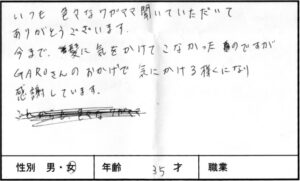 いつも 色々なワガママ聞いていただいて
ありがとうございます。
今まで、髪に気をかけてこなかったのですが
GAROさんのおかげで 気にかける様になり
感謝しています。
性別 男・女 年齢 35才 職業